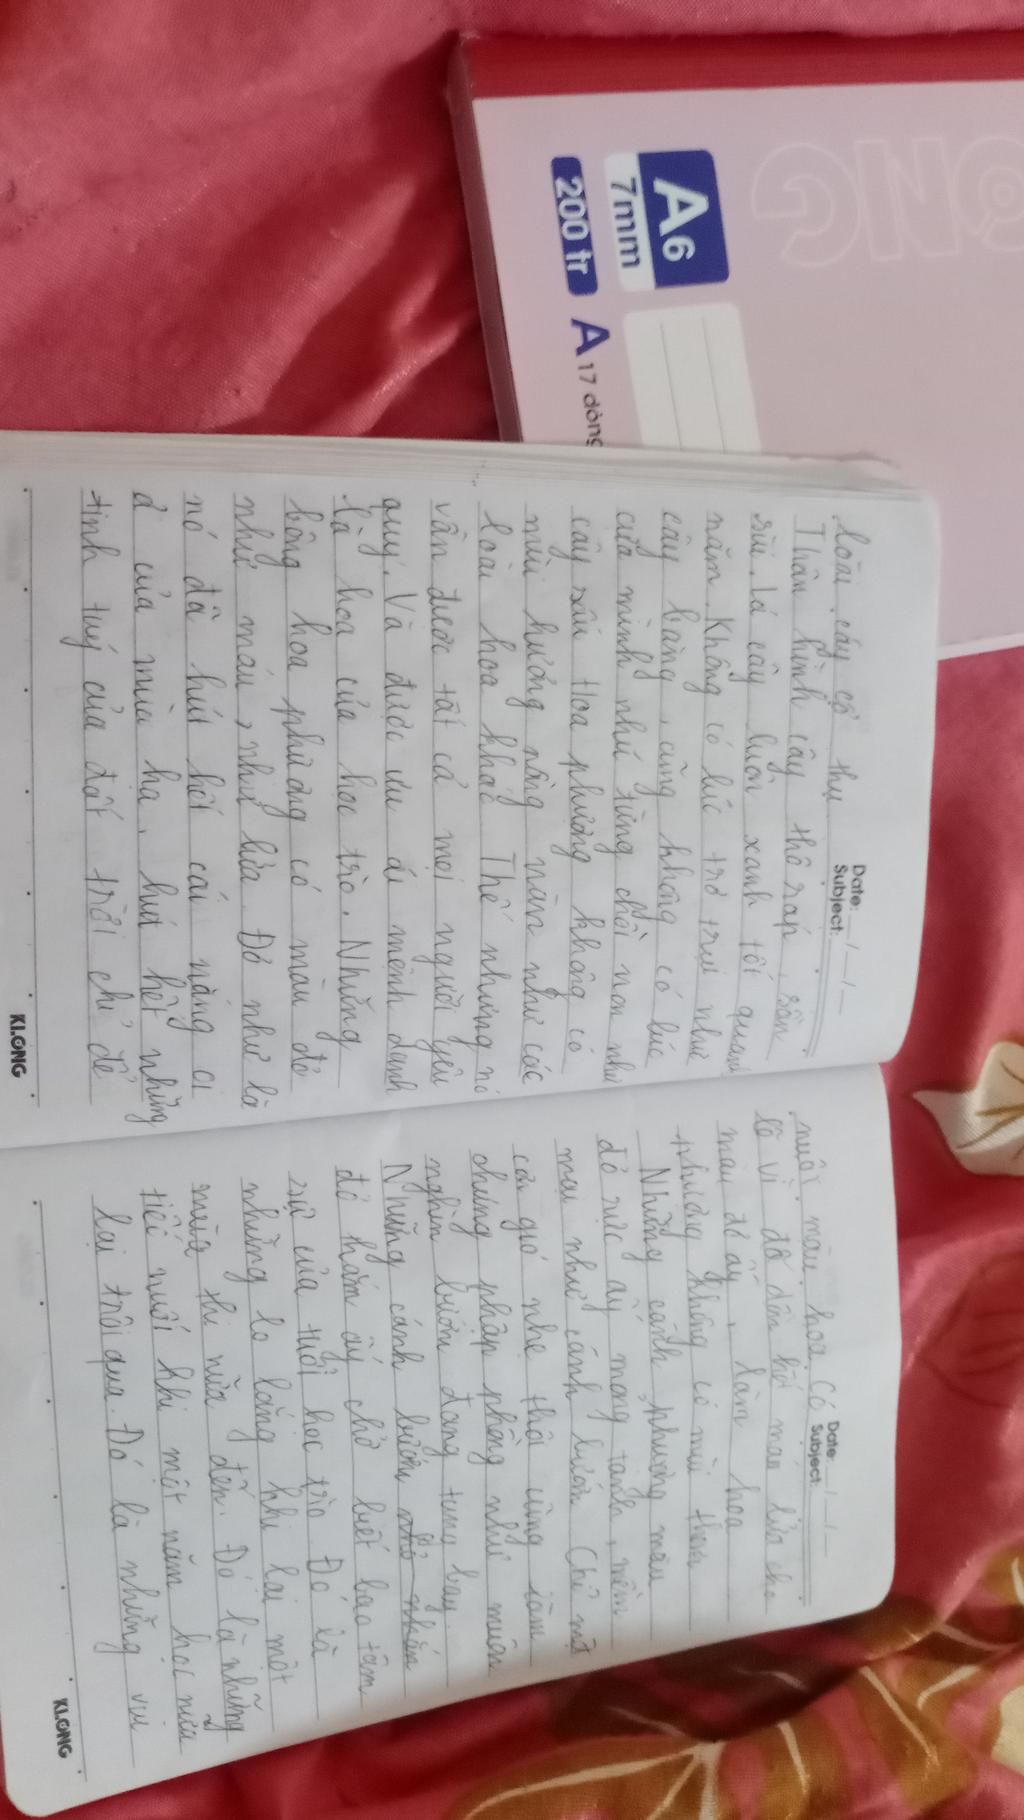 ONG
A6
7mm
200 tr
A 17 dòng
Date: __/__/__
Subject:
loài cây cổ thụ
Thân hình cây thô ráp, sần
sùi. lá cây luôn xanh tốt quanh
năm. Không có lúc trơ trụi như
cây bàng, cũng không có lúc
của mình nhú từng chồi non như
cây sấu Hoa phượng không có
mùi hương nồng nàn như các
loài hoa khác. Thế nhưng nó
vẫn được tất cả mọi người yêu
quý. Và được ưu ái mệnh danh
là hoa của học trò. Những
bông hoa phượng có màu đỏ
như máu, như lửa. Đó như là
nó đã hút hết cái nắng oi
ả của mùa hạ, hút hết những
tinh tuý của đất trời chỉ để
KLONG
Date: __/__/__
Subject:
nuôi màu hoa Có
lẽ vì đã dồn hết màu lửa cho
màu đỏ ấy, làm hoa
phượng không có mùi thơm
Những cánh phượng màu
đỏ rực ấy mong manh, mềm
mại như cánh bướm Chỉ một
cơn gió nhẹ thôi cũng làm
chúng phập phồng như muôn
nghìn bướm đang tung bay
Những cánh bướm
đỏ thắm ấy chở biết bao tâm
sự của tuổi học trò Đó là
những lo lắng khi lại một
mùa thi nữa đến. Đó là những
tiếc nuối khi một năm học nữa
lại trôi qua. Đó là những vui
KLONG